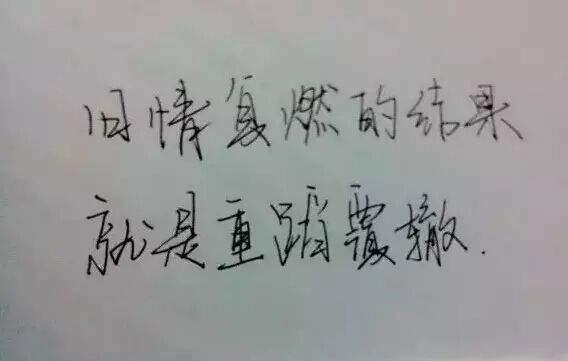 旧情复燃的结果
就是重蹈覆辙.